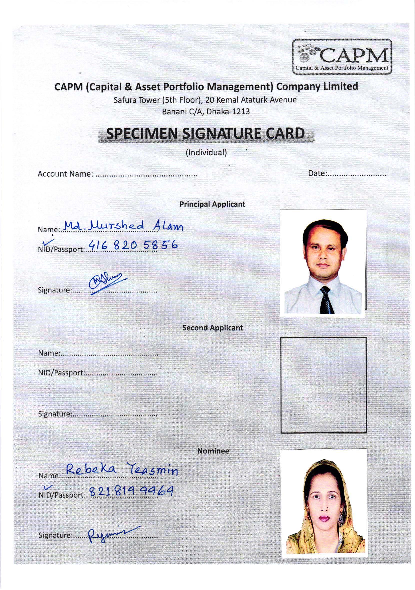 CAPM
Capital & Asset Portfolio Management
CAPM (Capital & Asset Portfolio Management) Company Limited
Safura Tower (5th Floor), 20 Kemal Ataturk Avenue
Banani C/A, Dhaka-1213
SPECIMEN SIGNATURE CARD
(Individual)
Account Name: ........................................
Date:.........................
Principal Applicant
Name: Md. Murshed Alam
NID/Passport: 416 820 5856
Signature:..................................
Second Applicant
Name:..................................
NID/Passport:..................................
Signature:..................................
Nominee
Name: Rebeka Yeasmin
NID/Passport: 821 819 9964
Signature:..................................